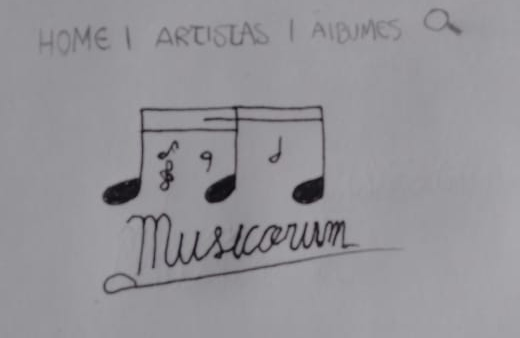 HOME | ARTISTAS | ÁLBUMES
Musicorum